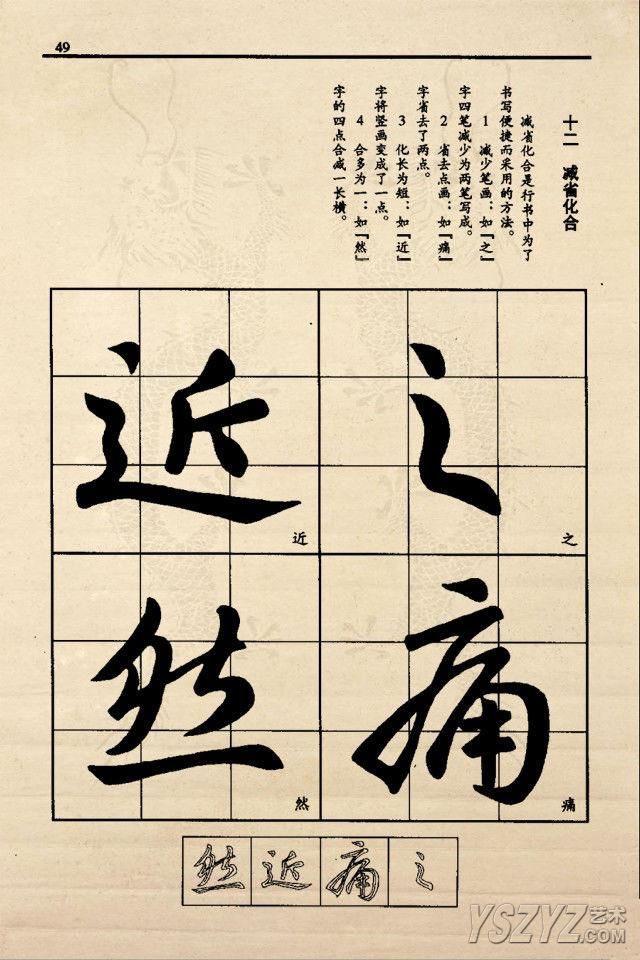 49
十二 减省化合
减省化合是行书中为了
书写便捷而采用的方法。
1 减少笔画：如『之』
字四笔减少为两笔写成。
2 省去点画：如『痛』
字省去了两点。
3 化长为短：如『近』
字将竖画变成了一点。
4 合多为一：如『然』
字的四点合减一长横。
之
之
痛
痛
近
近
然
然
之
痛
近
然
YSZYZ艺术
.COM